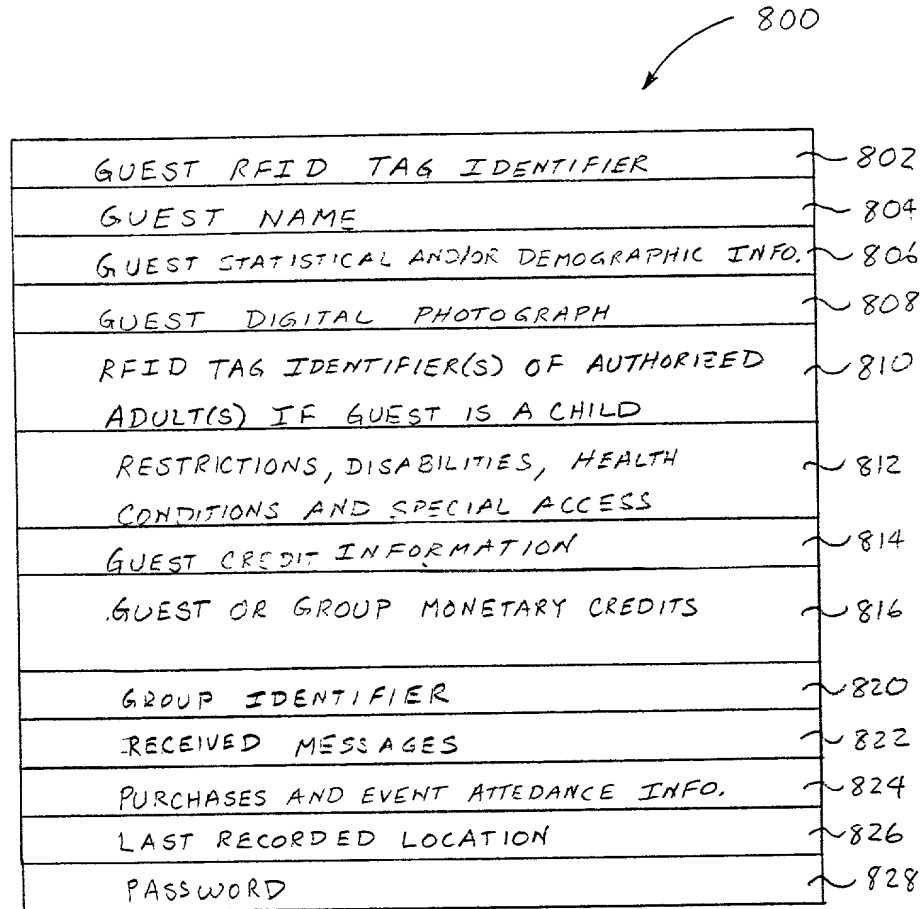 800
GUEST RFID TAG IDENTIFIER 802
GUEST NAME 804
GUEST STATISTICAL AND/OR DEMOGRAPHIC INFO. 806
GUEST DIGITAL PHOTOGRAPH 808
RFID TAG IDENTIFIER(S) OF AUTHORIZED 810
ADULT(S) IF GUEST IS A CHILD
RESTRICTIONS, DISABILITIES, HEALTH 812
CONDITIONS AND SPECIAL ACCESS
GUEST CREDIT INFORMATION 814
GUEST OR GROUP MONETARY CREDITS 816
GROUP IDENTIFIER 820
RECEIVED MESSAGES 822
PURCHASES AND EVENT ATTEDANCE INFO. 824
LAST RECORDED LOCATION 826
PASSWORD 828